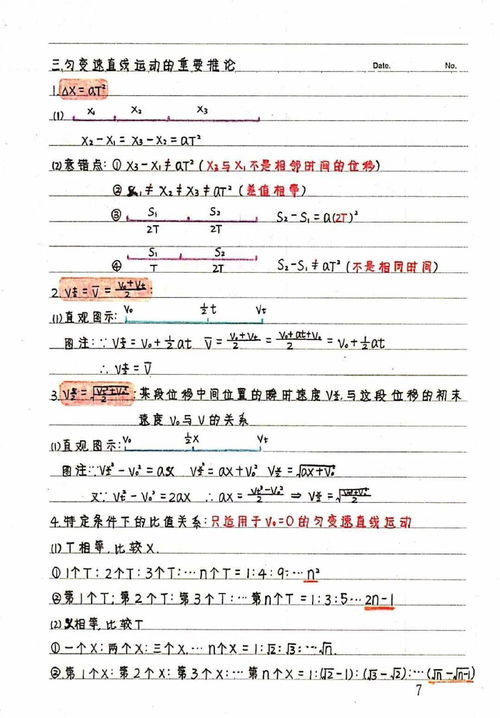 三.匀变速直线运动的重要推论 Date. No.
1. ΔX=aT²
(1) X₁ X₂ X₃
X₂-X₁=X₃-X₂=aT²
(2)易错点:① X₃-X₁≠aT²(X₂与X₁不是相邻时间的位移)
② X₁≠X₂≠X₃≠aT²(差值相等)
③ S₁ S₂ S₂-S₁=a(2T)²
2T 2T
④ S₁ S₂ S₂-S₁≠aT²(不是相同时间)
T 2T
2. V_{t/2}=V̄=(V₀+Vₜ)/2:
(1)直观图示: V₀ ½t Vₜ
图注:∵V_{t/2}=V₀+½at V̄=(V₀+Vₜ)/2=(V₀+at+V₀)/2=V₀+½at
∴V_{t/2}=V̄
3. V_{x/2}=√((V₀²+Vₜ²)/2):某段位移中间位置的瞬时速度V_{x/2},与这段位移的初末
速度V₀与V的关系
(1)直观图示: V₀ ½X Vₜ
图注:∵V_{x/2}²-V₀²=aX V_{x/2}²=aX+V₀² V_{x/2}=√(aX+V₀²)
又∵Vₜ²-V₀²=2aX ∴aX=(Vₜ²-V₀²)/2 ⇒ V_{x/2}=√((V₀²+Vₜ²)/2)
4.特定条件下的比值关系:只适用于V₀=0的匀变速直线运动
(1)T相等,比较X.
①1个T:2个T:3个T:…n个T=1:4:9:…n²
②第1个T:第2个T:第3个T:…第n个T=1:3:5…2n-1
(2)X相等,比较T
①一个X:两个X:三个X,…n个X=1:√2:√3:…√n.
②第1个X:第2个X:第3个X:…第n个X=1:(√2-1):(√3-√2):…(√n-√(n-1))
7